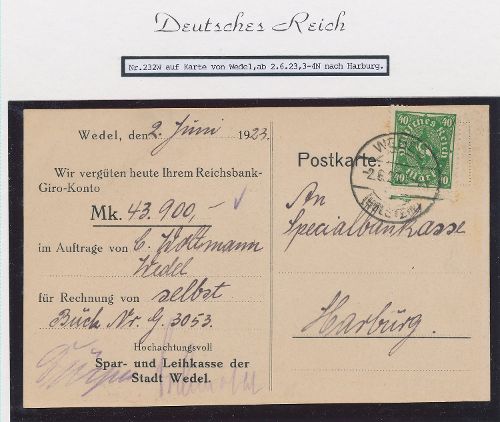 Deutsches Reich
Nr.232W auf Karte von Wedel,ab 2.6.23,3-4N nach Harburg.
Wedel, den 2. Juni 1923.
Wir vergüten heute Ihrem Reichsbank-
Giro-Konto
Mk. 43 900,-
im Auftrage von C. Wottmann
Wedel
für Rechnung von selbst
Bück Nr. G. 3053.
Hochachtungsvoll
Spar- und Leihkasse der
Stadt Wedel.
Postkarte
40 40
Deutsches Reich
Mark
40 40
WEDEL
2.6.
(HOLSTEIN)
An
Specialbankasse
Harburg.